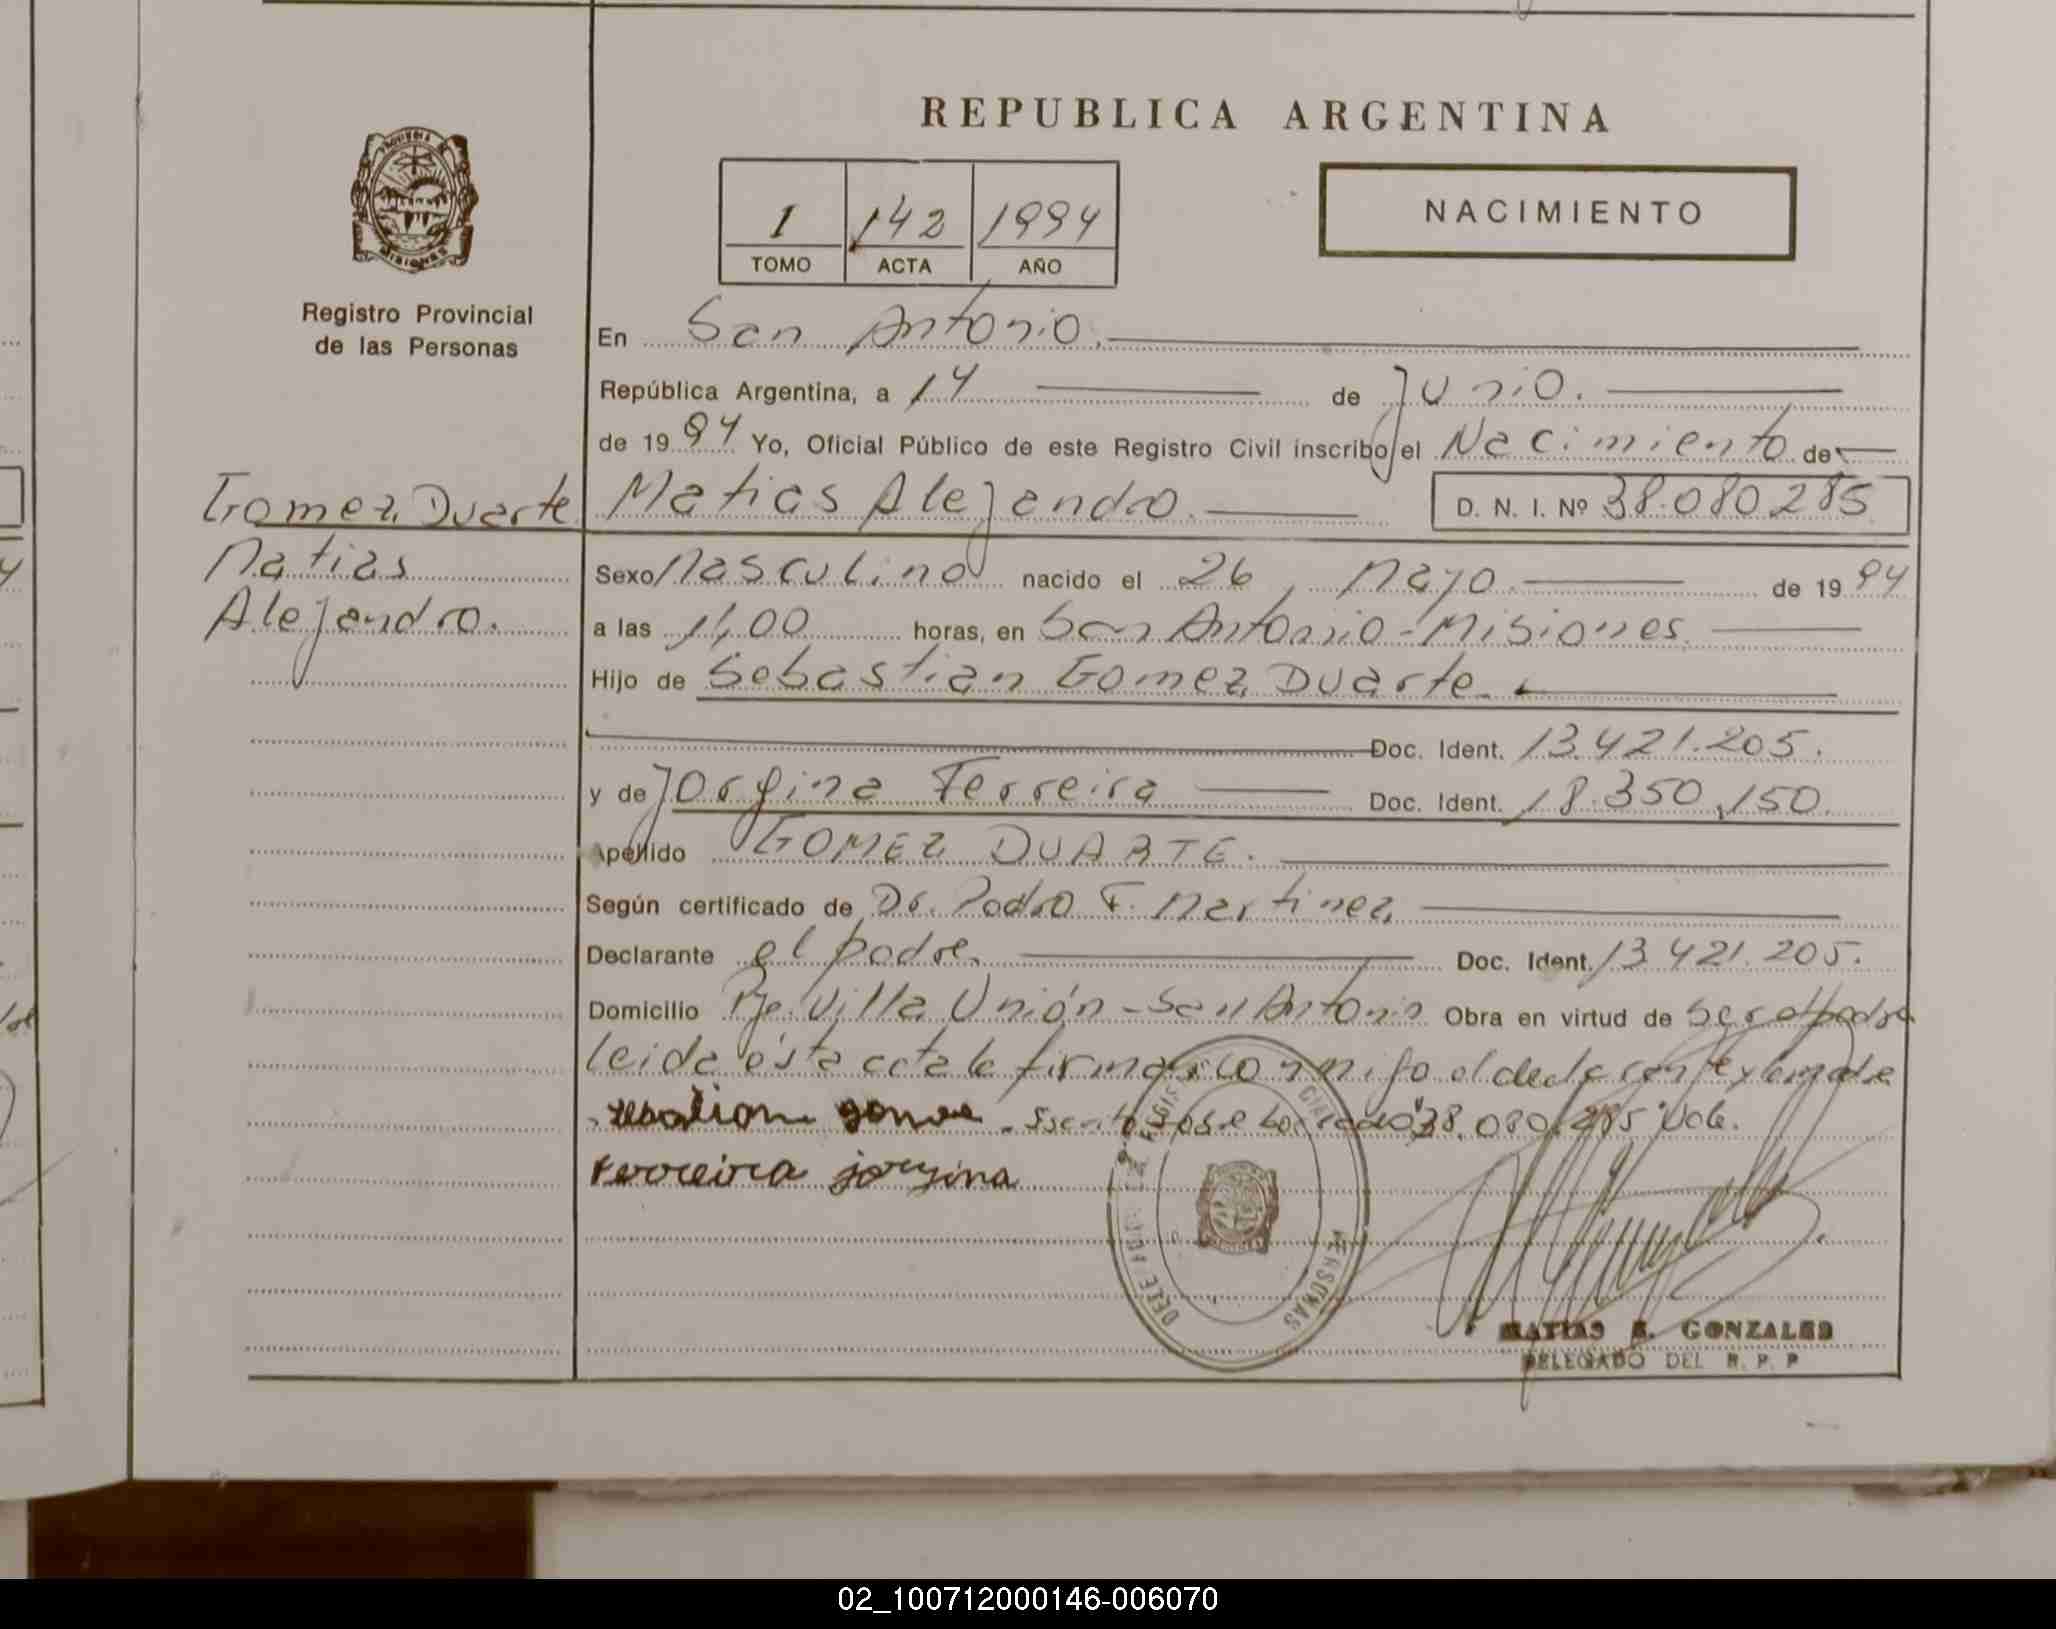 REPUBLICA ARGENTINA
NACIMIENTO
1 142 1994
TOMO ACTA AÑO
MISIONES
Registro Provincial
de las Personas
En San Antonio.
República Argentina, a 14 de Junio.
de 1994 Yo, Oficial Público de este Registro Civil inscribo el Nacimiento de
Gomez Duarte
Matias
Alejandro.
Matias Alejandro. D. N. I. Nº 38.080.285
Sexo Masculino nacido el 26, Mayo. de 1994
a las 11,00 horas, en San Antonio - Misiones.
Hijo de Sebastian Gomez Duarte.
Doc. Ident. 13.421.205.
y de Jorgina Ferreira Doc. Ident. 18.350.150.
Apellido GOMEZ DUARTE.
Según certificado de Dr. Pedro F. Martinez
Declarante el padre. Doc. Ident. 13.421.205.
Domicilio Pje. Villa Unión - San Antonio Obra en virtud de ser el padre
leida ésta acta la firman conmigo el declarante y la madre
sebastian gomez 38.080.285 Vale.
Ferreira jorgina
PERSONAS
MATIAS E. GONZALES
DELEGADO DEL R. P. P
02_100712000146-006070